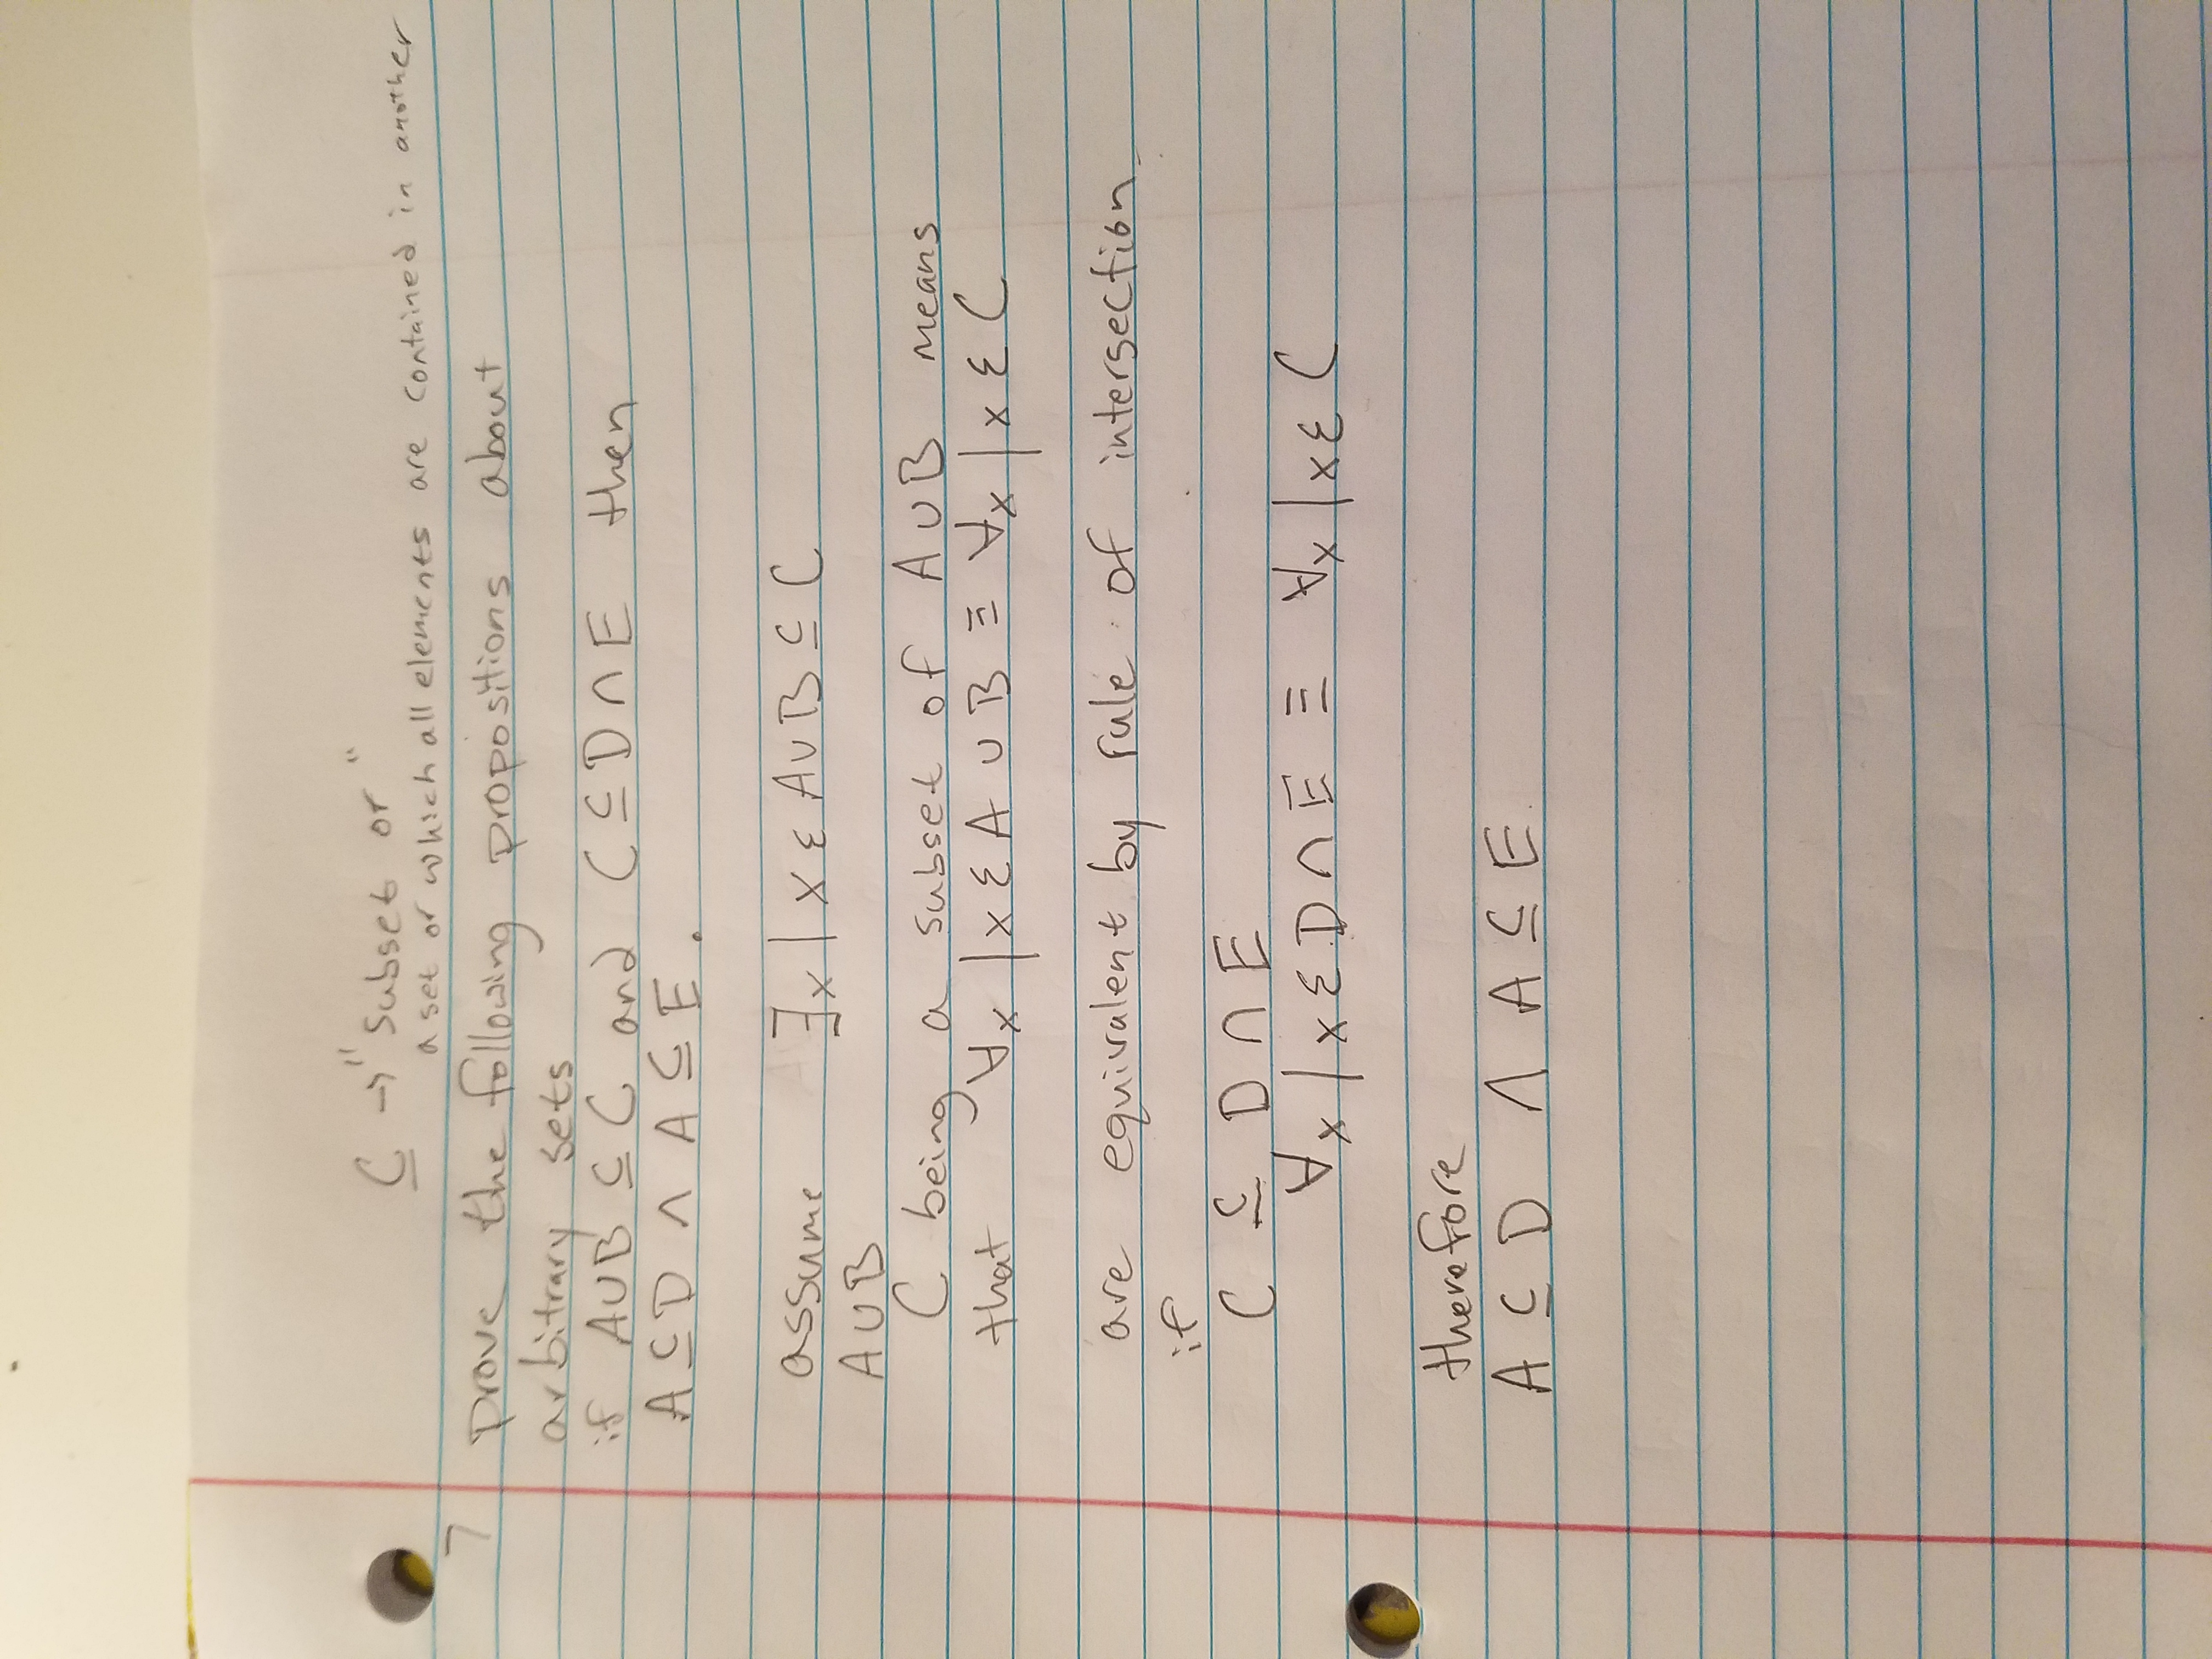 ⊆ → "subset or"
a set or which all elements are contained in another
7 prove the following propositions about
arbitrary sets
if A∪B ⊆ C and C ⊆ D ∩ E then
A ⊆ D ∧ A ⊆ E.
assume ∃x | x ε A∪B ⊆ C
A∪B
C being a subset of A∪B means
that ∀x | x ε A ∪ B ≡ ∀x | x ε C
are equivalent by rule of intersection
if
C ⊆ D ∩ E
∀x | x ε D ∩ E ≡ ∀x | x ε C
therefore
A ⊆ D ∧ A ⊆ E.